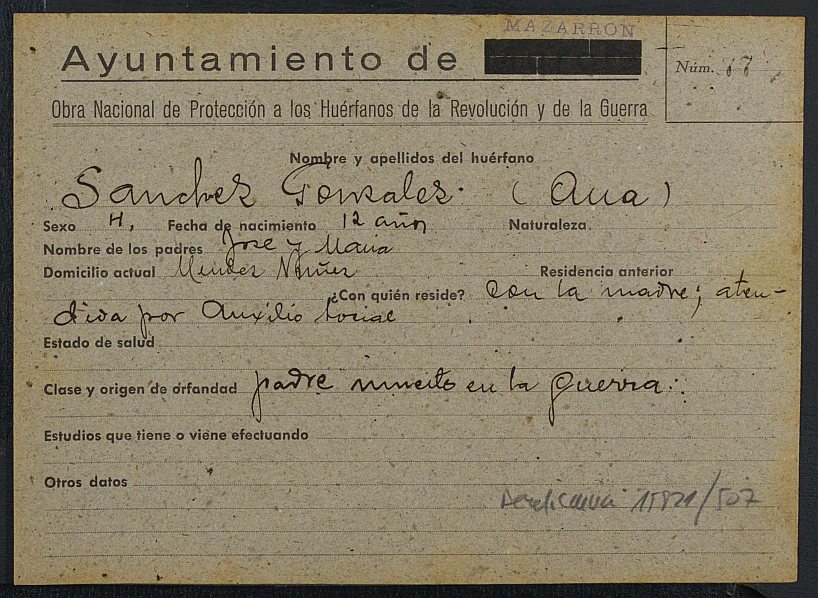 MAZARRON
Ayuntamiento de
Núm. 17
Obra Nacional de Protección a los Huérfanos de la Revolución y de la Guerra
Nombre y apellidos del huérfano
Sanchez Gonzalez. (Ana)
Sexo H. Fecha de nacimiento 12 años Naturaleza
Nombre de los padres José y Maria
Domicilio actual Mendez Nuñez Residencia anterior
¿Con quién reside? Con la madre; aten-
dida por Auxilio Social
Estado de salud
Clase y origen de orfandad padre muerto en la guerra.
Estudios que tiene o viene efectuando
Otros datos
15821/507